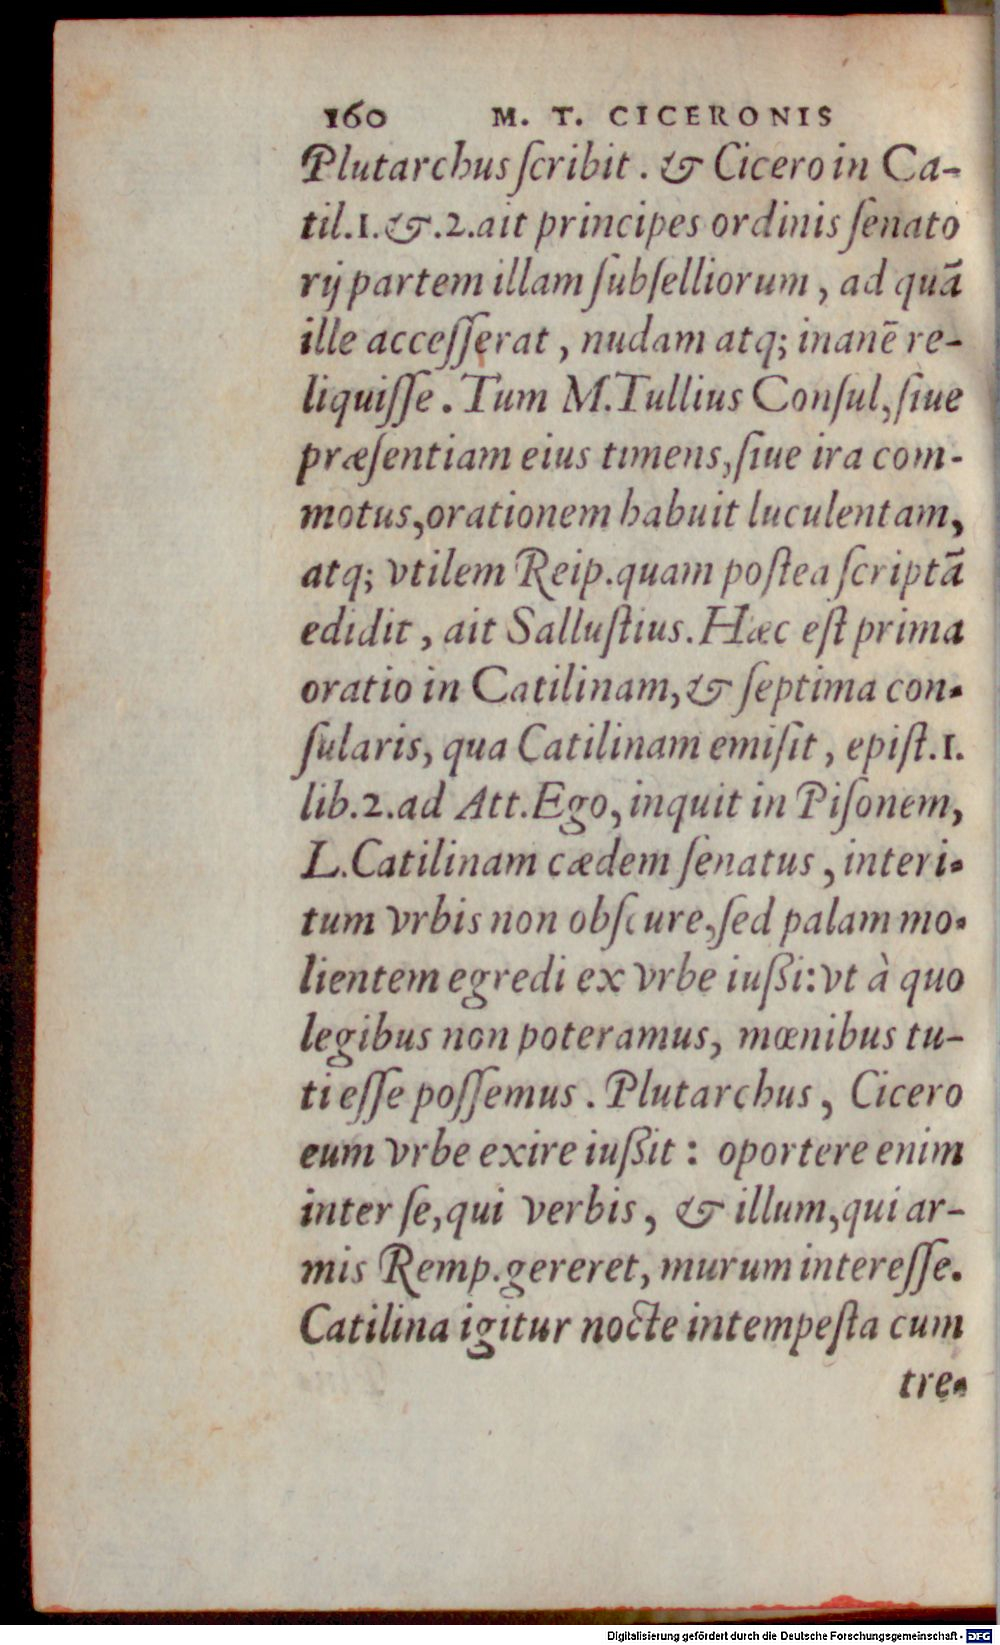 160 M. T. CICERONIS
Plutarchus ſcribit. & Cicero in Ca-
til.1.&.2.ait principes ordinis ſenato
rij partem illam ſubſelliorum, ad quā
ille acceſſerat, nudam atq; inanē re-
liquiſſe. Tum M.Tullius Conſul,ſiue
præſentiam eius timens,ſiue ira com-
motus,orationem habuit luculentam,
atq; vtilem Reip.quam poſtea ſcriptā
edidit, ait Salluſtius. Hæc eſt prima
oratio in Catilinam,& ſeptima con-
ſularis, qua Catilinam emiſit, epiſt.1.
lib.2.ad Att.Ego, inquit in Piſonem,
L.Catilinam cædem ſenatus, interi-
tum vrbis non obſcure,ſed palam mo-
lientem egredi ex vrbe iußi: vt à quo
legibus non poteramus, mœnibus tu-
ti eſſe poſſemus. Plutarchus, Cicero
eum vrbe exire iußit: oportere enim
inter ſe,qui verbis, & illum,qui ar-
mis Remp.gereret, murum intereſſe.
Catilina igitur nocte intempeſta cum
tre-
Digitalisierung gefördert durch die Deutsche Forschungsgemeinschaft - DFG